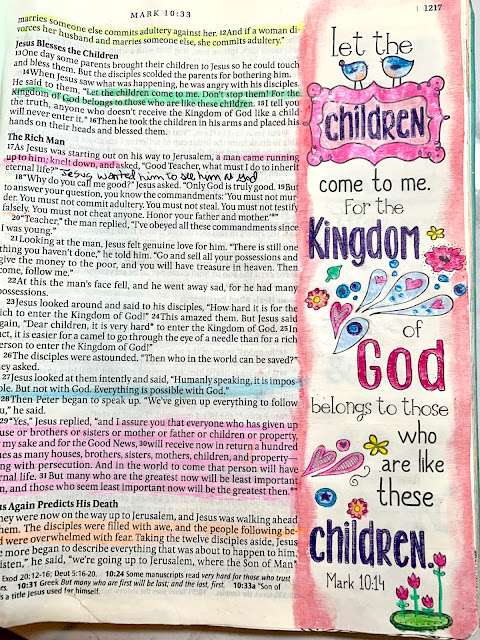 MARK 10:33
1217
marries someone else commits adultery against her. 12And if a woman di-
vorces her husband and marries someone else, she commits adultery."
Jesus Blesses the Children
13One day some parents brought their children to Jesus so he could touch
and bless them. But the disciples scolded the parents for bothering him.
14When Jesus saw what was happening, he was angry with his disciples.
He said to them, "Let the children come to me. Don't stop them! For the
Kingdom of God belongs to those who are like these children. 15I tell you
the truth, anyone who doesn't receive the Kingdom of God like a child
will never enter it." 16Then he took the children in his arms and placed his
hands on their heads and blessed them.
The Rich Man
17As Jesus was starting out on his way to Jerusalem, a man came running
up to him, knelt down, and asked, "Good Teacher, what must I do to inherit
eternal life?" Jesus wanted him to see him as God
18"Why do you call me good?" Jesus asked. "Only God is truly good. 19But
to answer your question, you know the commandments: 'You must not mur-
der. You must not commit adultery. You must not steal. You must not testify
falsely. You must not cheat anyone. Honor your father and mother.'*"
20"Teacher," the man replied, "I've obeyed all these commandments since
I was young."
21Looking at the man, Jesus felt genuine love for him. "There is still one
thing you haven't done," he told him. "Go and sell all your possessions and
give the money to the poor, and you will have treasure in heaven. Then
come, follow me."
22At this the man's face fell, and he went away sad, for he had many
possessions.
23Jesus looked around and said to his disciples, "How hard it is for the
rich to enter the Kingdom of God!" 24This amazed them. But Jesus said
again, "Dear children, it is very hard* to enter the Kingdom of God. 25In
fact, it is easier for a camel to go through the eye of a needle than for a rich
person to enter the Kingdom of God!"
26The disciples were astounded. "Then who in the world can be saved?"
they asked.
27Jesus looked at them intently and said, "Humanly speaking, it is impos-
ble. But not with God. Everything is possible with God."
28Then Peter began to speak up. "We've given up everything to follow
u," he said.
29"Yes," Jesus replied, "and I assure you that everyone who has given up
use or brothers or sisters or mother or father or children or property,
my sake and for the Good News, 30will receive now in return a hundred
es as many houses, brothers, sisters, mothers, children, and property—
ng with persecution. And in the world to come that person will have
rnal life. 31But many who are the greatest now will be least important
n, and those who seem least important now will be the greatest then.*"
us Again Predicts His Death
hey were now on the way up to Jerusalem, and Jesus was walking ahead
them. The disciples were filled with awe, and the people following be-
d were overwhelmed with fear. Taking the twelve disciples aside, Jesus
e more began to describe everything that was about to happen to him.
isten," he said, "we're going up to Jerusalem, where the Son of Man*
Exod 20:12-16; Deut 5:16-20. 10:24 Some manuscripts read very hard for those who trust
es. 10:31 Greek But many who are first will be last; and the last, first. 10:33a "Son of
s a title Jesus used for himself.
Let the
children
come to me.
For the
Kingdom
of
God
belongs to those
who
are like
these
children.
Mark 10:14